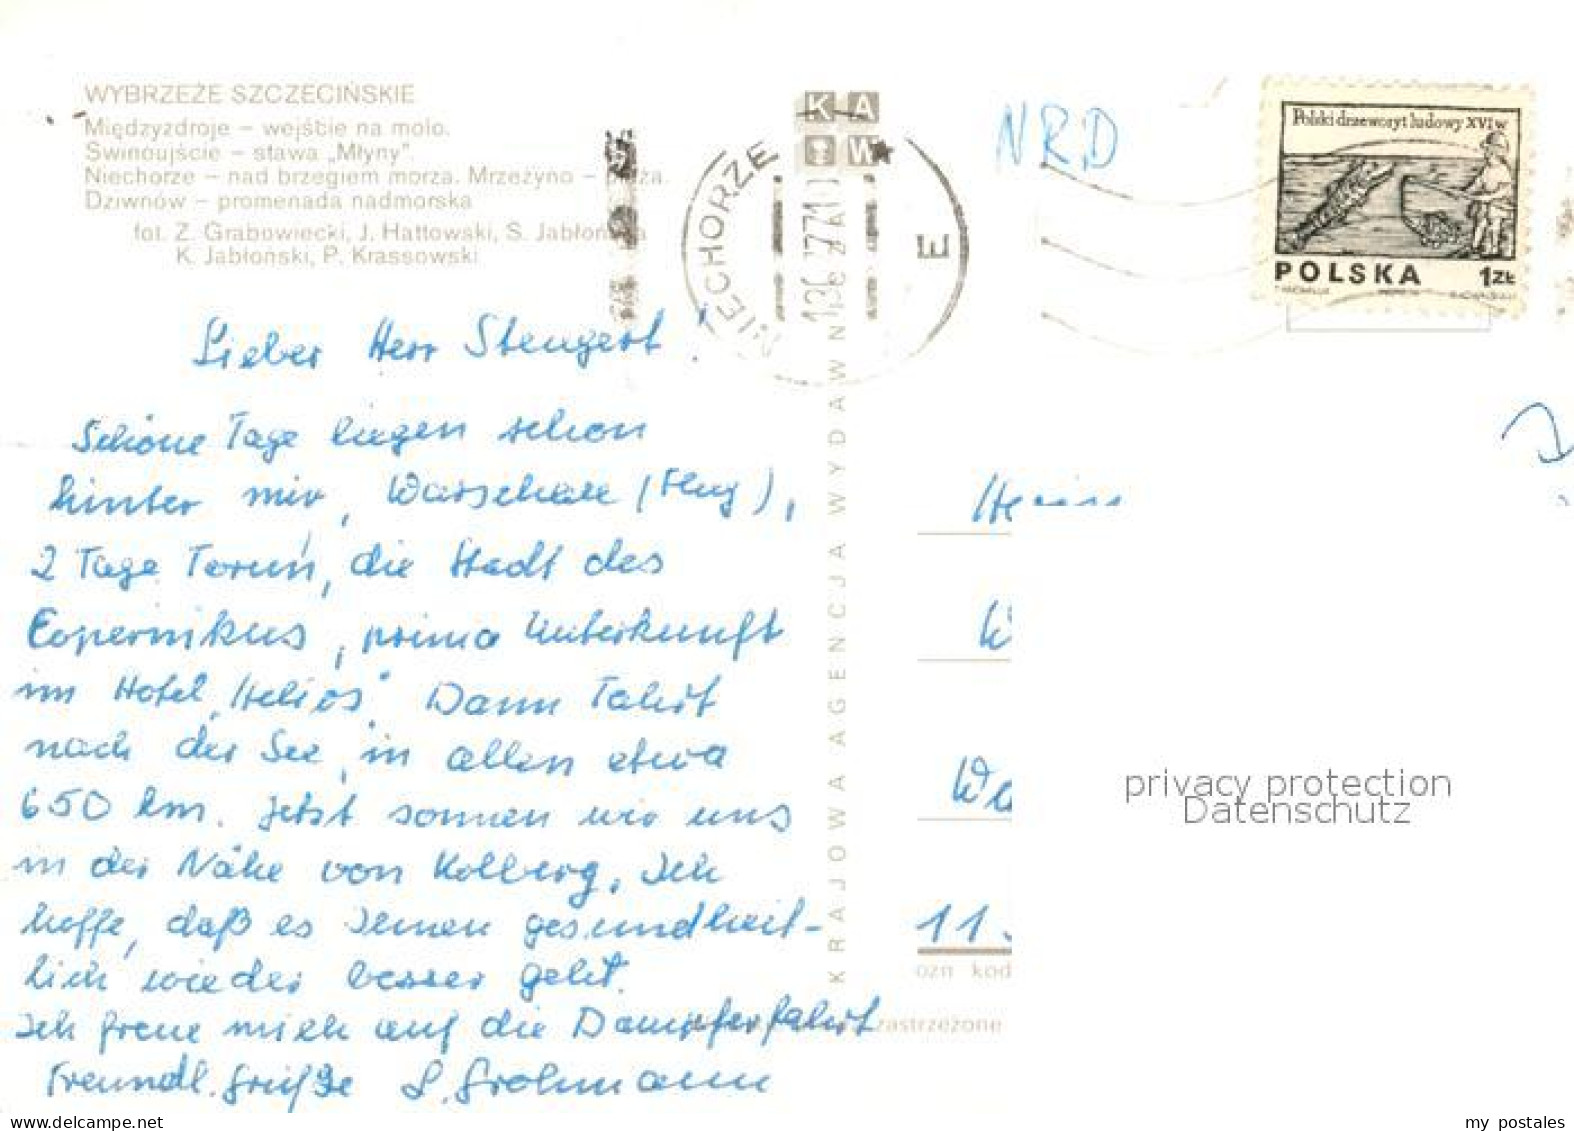 WYBRZEŻE SZCZECIŃSKIE
Międzyzdroje – wejście na molo.
Świnoujście – stawa „Młyny”.
Niechorze – nad brzegiem morza. Mrzeżyno – plaża.
Dziwnów – promenada nadmorska
fot. Z. Grabowiecki, J. Hattowski, S. Jabłońska
K. Jabłoński, P. Krassowski
K A
W
NIECHORZE
E
NRD
Polski drzeworyt ludowy XVI w
POLSKA 1 ZŁ
Lieber Herr Stengert!
Schöne Tage liegen schon
hinter mir, Warschau (Flug),
2 Tage Toruń, die Stadt des
Copernikus, prima Unterkunft
im Hotel „Helios”. Dann Fahrt
nach der See, in allen etwa
650 km. Jetzt sonnen wir uns
in der Nähe von Kolberg. Ich
hoffe, daß es Ihnen gesundheit-
lich wieder besser geht.
Ich freue mich auf die Dampferfahrt
Freundl. Grüße S. Grohmann
KRAJOWA AGENCJA WYDAWN
11
ozn kod
zastrzeżone
privacy protection
Datenschutz
my postales
www.delcampe.net